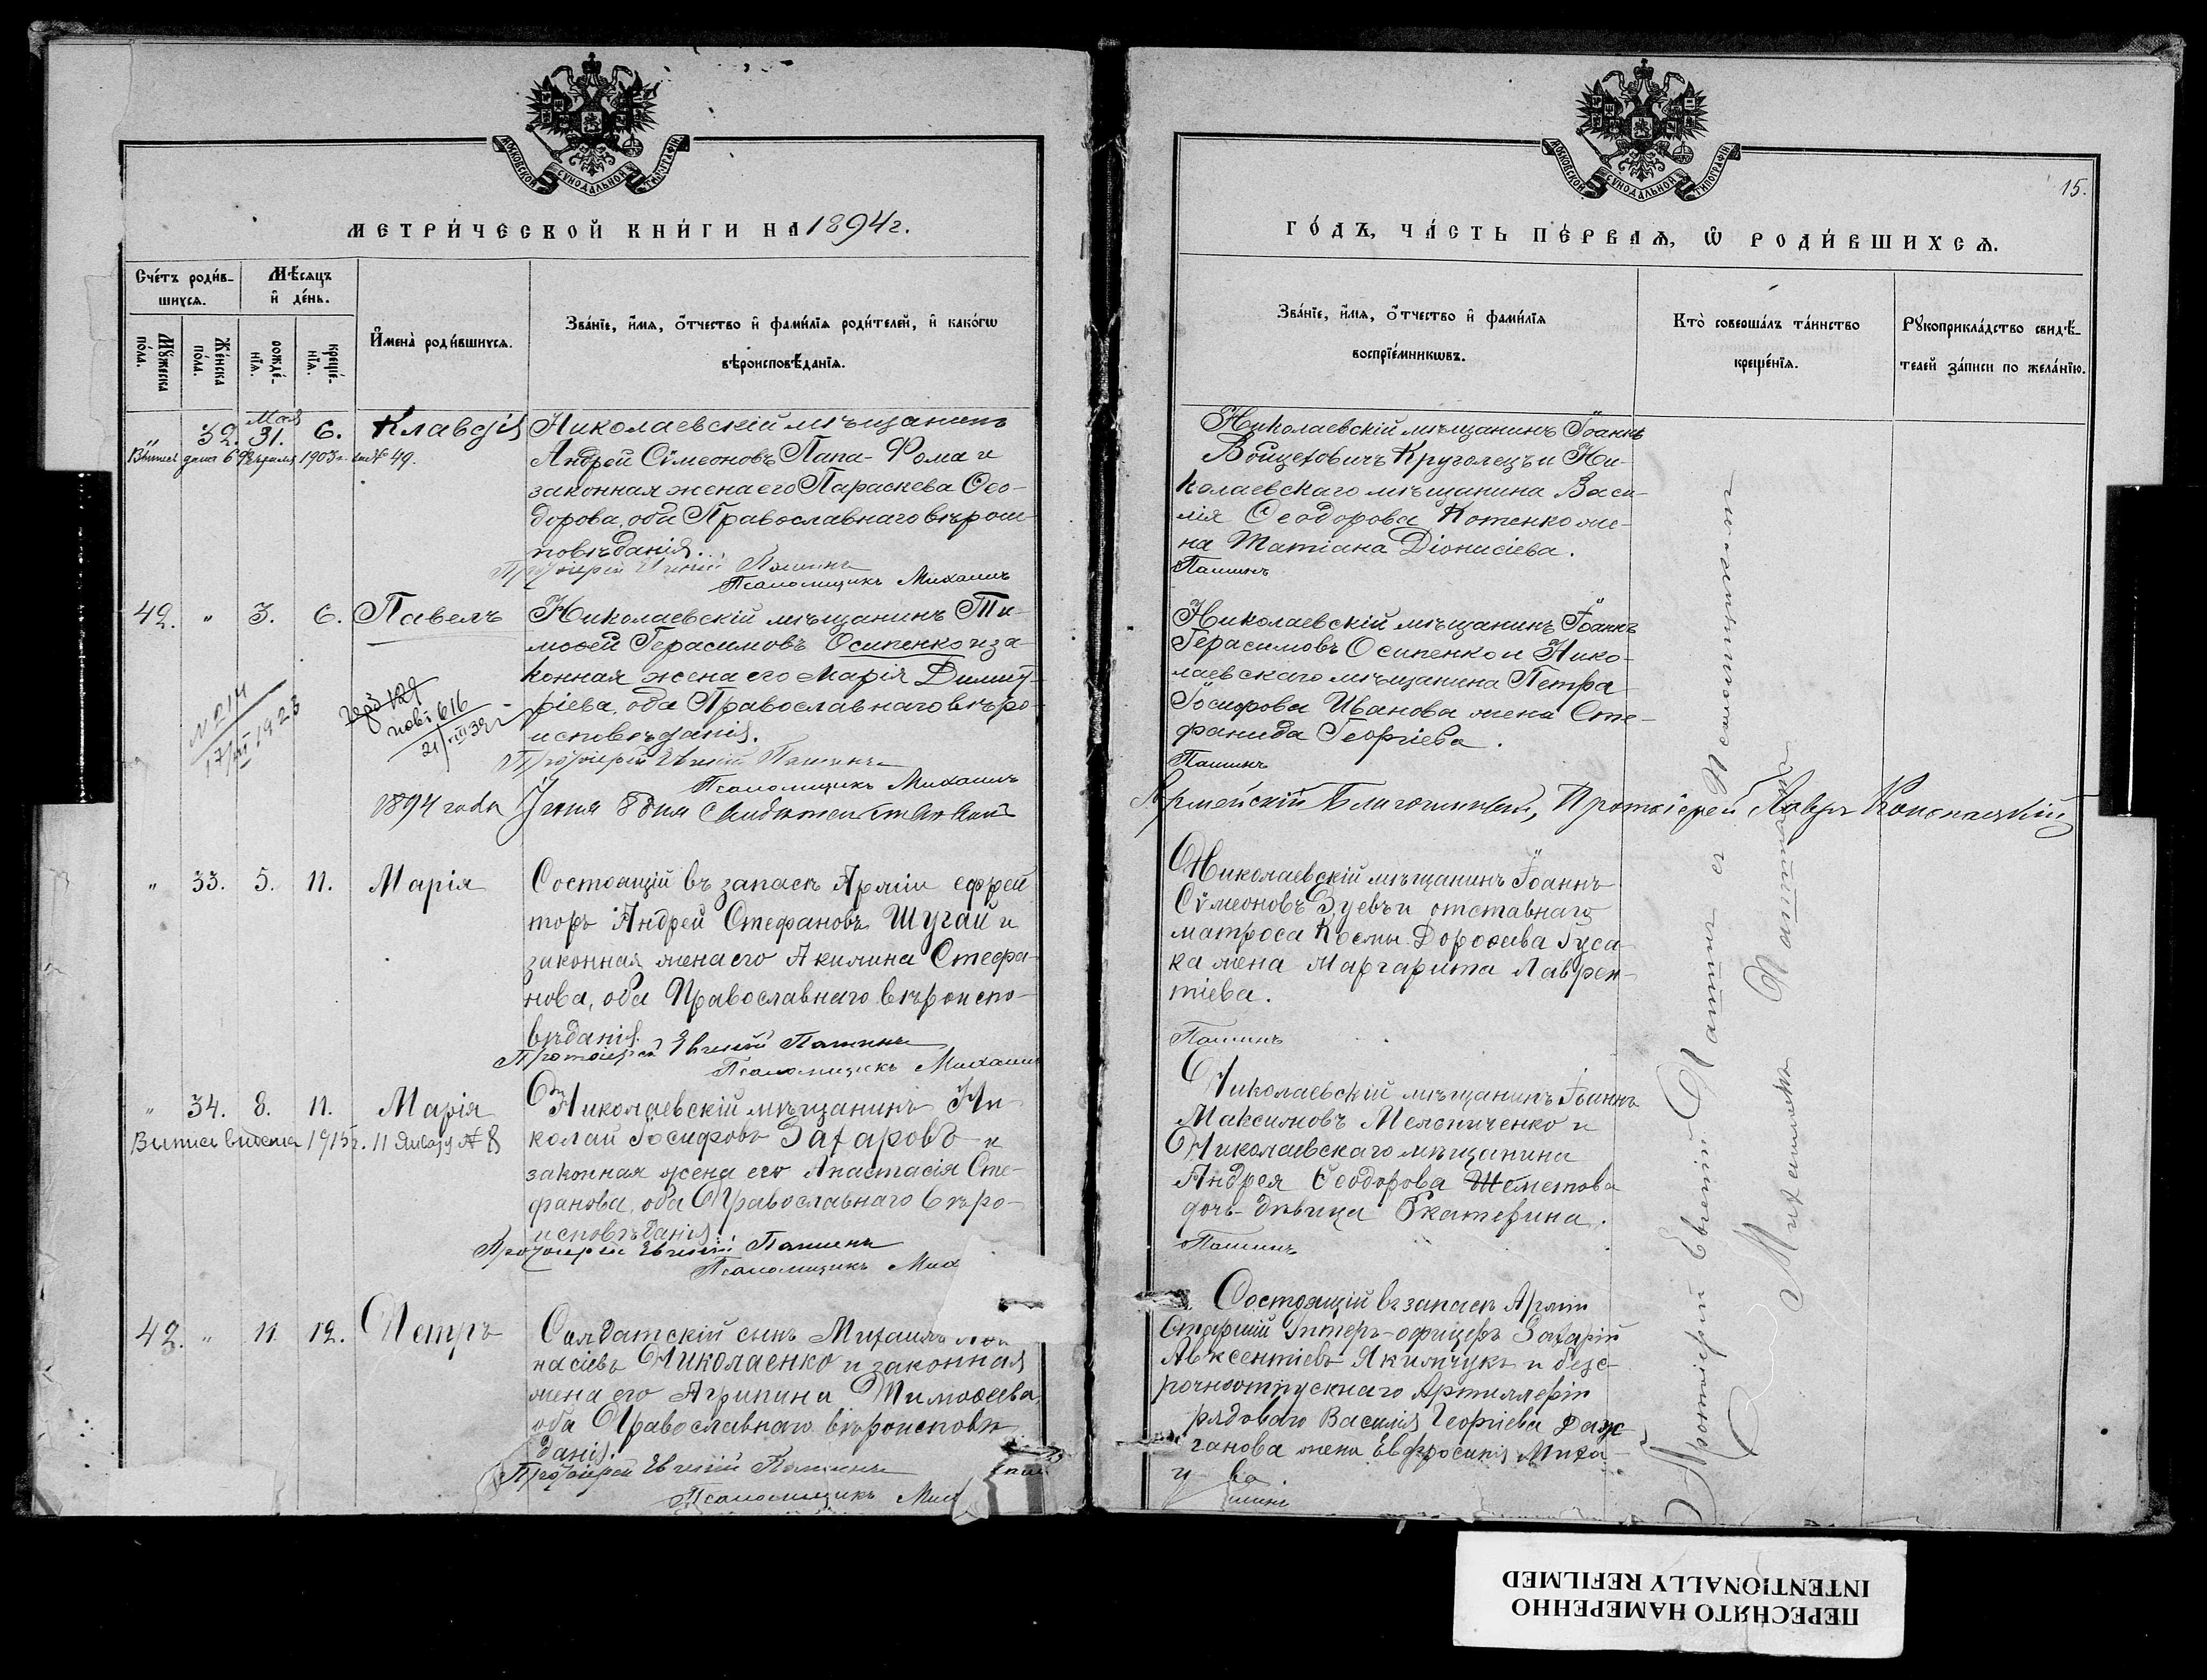 МОСКОВСКОЙ СУНОДАЛЬНОЙ ТИПОГРАФІИ
МЕТРИ́ЧЕСКОЙ КНИ́ГИ НА 1894 г.
Сче́тъ роди́в-
шихся.
Мѣ́сяцъ
и҆ де́нь.
Мꙋ́жеска по́ла.
Же́нска по́ла.
рожде́-нїя.
креще́-нїя.
И҆мена̀ роди́вшихся.
Зва́нїе, и҆́мя, о҆́тчество и҆ фами́лїя роди́телей, и҆ како́гѡ
вѣроисповѣ́данїя.
Мая
" 32. 31. 6. Клавдія
Выпись дана 6 Февраля 1903 г. за № 49.
Николаевскій мѣщанинъ
Андрей Сѵмеоновъ Папа-Фома и
законная жена его Параскева Ѳео-
дорова, оба Православнаго вѣрои-
повѣданія.
Протоіерей Евгеній Пашинъ
Псаломщикъ Михаилъ
42. " 3. 6. Павелъ
Николаевскій мѣщанинъ Ти-
моѳей Герасимовъ Осипенко и за-
конная жена его Марія Димит-
ріева, оба Православнаго вѣро-
исповѣданія.
№ 214
1923
616
Протоіерей Евгеній Пашинъ
Псаломщикъ Михаилъ
1894 года Іюня 8 дня Свидѣтельствовалъ
" 33. 5. 11. Марія
Состоящій въ запасѣ Арміи ефрей
торъ Андрей Стефановъ Шугай и
законная жена его Акилина Стефа-
нова, оба Православнаго вѣроиспо-
вѣданія.
Протоіерей Евгеній Пашинъ
Псаломщикъ Михаилъ
" 34. 8. 11. Марія
Выпись выдана 1915 г. 11 Января № 8
Николаевскій мѣщанинъ Ни-
колай Іосифовъ Захаровъ и
законная жена его Анастасія Сте-
фанова, оба Православнаго вѣро-
исповѣданія.
Протоіерей Евгеній Пашинъ
Псаломщикъ Мих
43. " 11. 12. Петръ
Солдатскій сынъ Михаилъ
насіевъ Николаенко и законная
жена его Агрипина Тимоѳеева,
оба Православнаго вѣроисповѣ
данія.
Протоіерей Евгеній Пашинъ
Псаломщикъ Мих
МОСКОВСКОЙ СУНОДАЛЬНОЙ ТИПОГРАФІИ
15.
ГО́ДЪ, ЧА́СТЬ ПЕ́РВАЯ, Ѽ РОДИ́ВШИХСЯ.
Зва́нїе, и҆́мя, о҆́тчество и҆ фами́лїя
воспрїе́мникѡвъ.
Кто̀ соверша́лъ та́инство
креще́нїя.
Рꙋкоприкла́дство свидѣ́-
телей за́писи по жела́нїю.
Николаевскій мѣщанинъ Іоаннъ
Войцеховичъ Круголецъ и Ни-
колаевскаго мѣщанина Васи-
лія Ѳеодорова Котенко же-
на Татіана Діонисіева.
Пашинъ
Николаевскій мѣщанинъ Іоаннъ
Герасимовъ Осипенко и Нико-
лаевскаго мѣщанина Петра
Іосифова Иванова жена Сте-
фанида Георгіева.
Пашинъ
Армейскій Благочинный, Протоіерей Лавръ Конопацкій
Николаевскій мѣщанинъ Іоаннъ
Сѵмеоновъ Зуевъ и отставнаго
матроса Космы Дороѳеева Гуса-
ка жена Маргарита Лаврен-
тіева.
Пашинъ
Николаевскій мѣщанинъ Іоаннъ
Максимовъ Мельниченко и
Николаевскаго мѣщанина
Андрея Ѳеодорова Шеметова
дочь дѣвица Екатерина.
Пашинъ
Состоящій въ запасѣ Арміи
Старшій Унтеръ-офицеръ Захарій
Авксентіевъ Якимчукъ и безс-
рочноотпускнаго Артиллеріи
рядоваго Василія Георгіева Даж-
ганова жена Евфросинія Миха-
ва.
Протоіерей Евгеній Пашинъ с Псаломщикомъ
ПЕРЕСНЯТО НАМЕРЕННО
INTENTIONALLY REFILMED